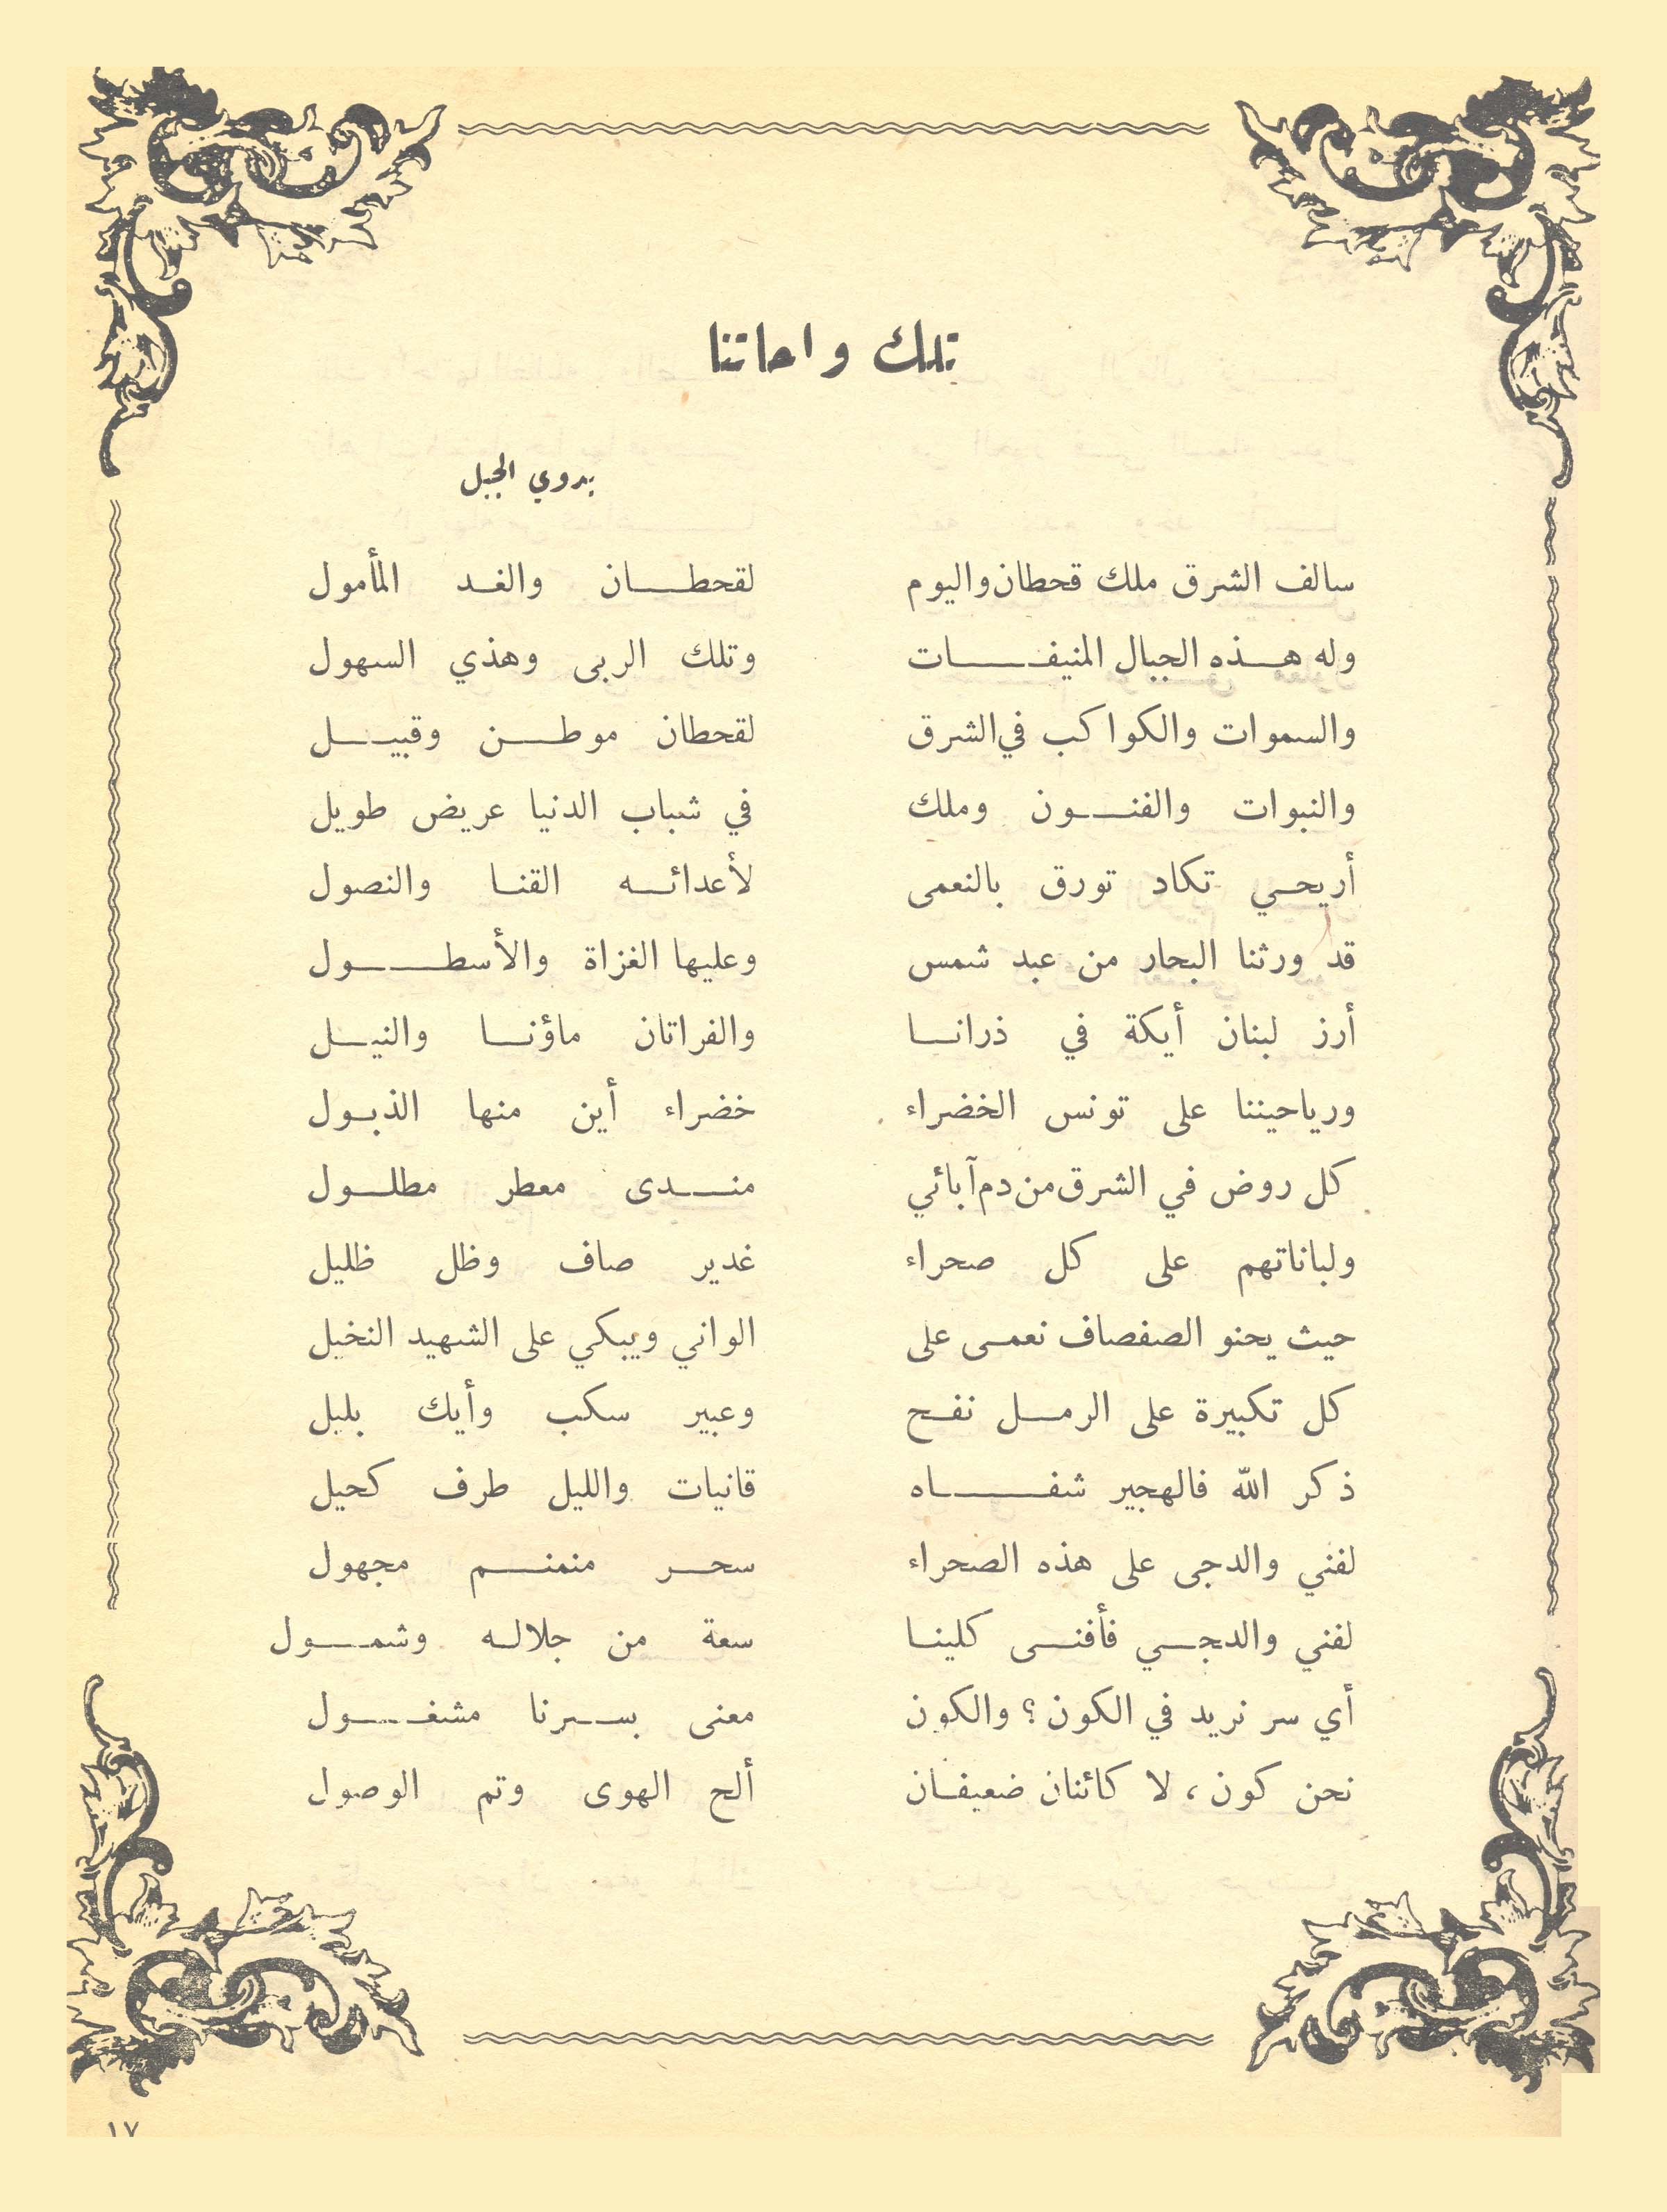 تلك واحاتنا
بدوي الجبل
سالف الشرق ملك قحطان واليوم لقحطان والغد المأمول
وله هذه الجبال المنيفات وتلك الربى وهذي السهول
والسموات والكواكب في الشرق لقحطان موطن وقبيل
والنبوات والفنون وملك في شباب الدنيا عريض طويل
أريحي تكاد تورق بالنعمى لأعدائه القنا والنصول
قد ورثنا البحار من عبد شمس وعليها الغزاة والأسطول
أرز لبنان أيكة في ذرانا والفراتان ماؤنا والنيل
ورياحيننا على تونس الخضراء خضراء أين منها الذبول
كل روض في الشرق من دم آبائي مندى معطر مطلول
ولباناتهم على كل صحراء غدير صاف وظل ظليل
حيث يحنو الصفصاف نعمى على الواني ويبكي على الشهيد النخيل
كل تكبيرة على الرمل نفح وعبير سكب وأيك بليل
ذكر الله فالهجير شفاه قانيات والليل طرف كحيل
لفني والدجى على هذه الصحراء سحر منمنم مجهول
لفني والدجي فأفنى كلينا سعة من جلاله وشمول
أي سر نريد في الكون ؟ والكون معنى بسرنا مشغول
نحن كون ، لا كائنان ضعيفان ألح الهوى وتم الوصول
١٧